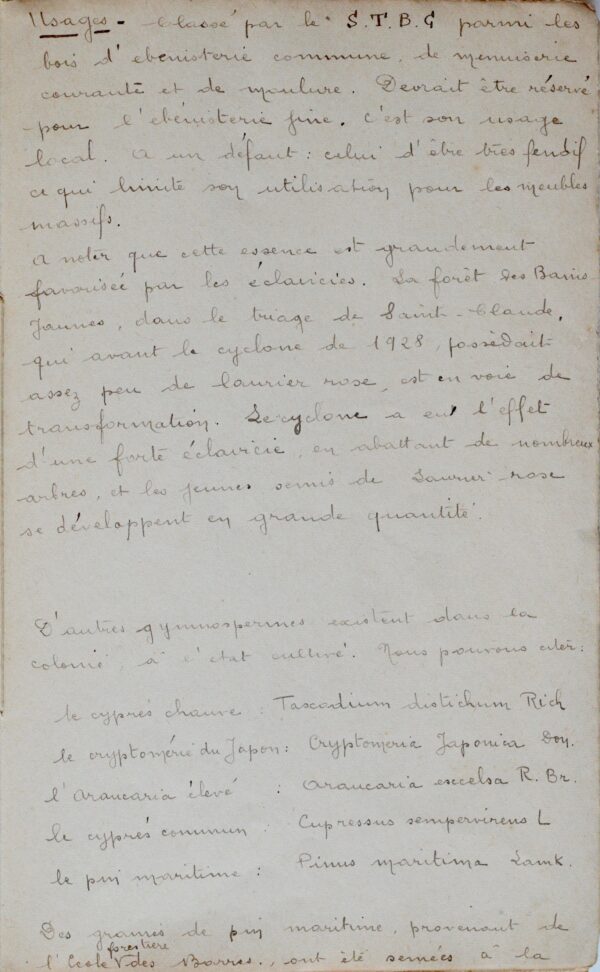 Usages - Classé par le S.T.B.G parmi les
bois d'ebenisterie commune, de menuiserie
courante et de moulure. Devrait être réservé
pour l'ebénisterie fine. C'est son usage
local. A un défaut : celui d'être très fendif
ce qui limite son utilisation pour les meubles
massifs.
A noter que cette essence est grandement
favorisée par les éclaircies. La forêt des Bains
Jaunes, dans le triage de Saint-Claude,
qui avant le cyclone de 1928, possédait
assez peu de laurier rose, est en voie de
transformation. Le cyclone a eu l'effet
d'une forte éclaircie, en abattant de nombreux
arbres, et les jeunes semis de Laurier rose
se développent en grande quantité.
D'autres gymnospermes existent dans la
colonie, à l'état cultivé. Nous pouvons citer :
le cyprès chauve : Tascodium distichum Rich
le cryptomérie du Japon : Cryptomeria Japonica Don.
l'Araucaria élevé : Araucaria excelsa R. Br.
le cyprès commun : Cupressus sempervirens L
le pin maritime : Pinus maritima Lamk.
Des graines de pin maritime, provenant de
l'Ecole forestière des Barres, ont été semées à la